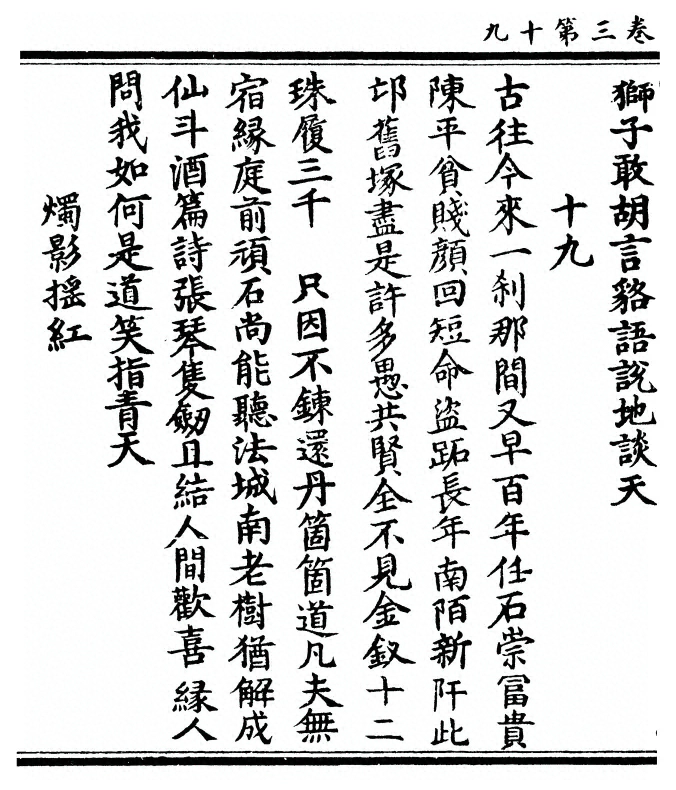 卷三第十九
獅子敢胡言貉語說地談天
十九
古往今來一刹那間又早百年任石崇冨貴
陳平貧賤顔回短命盜跖長年南陌新阡此
邙舊塚盡是許多愚共賢全不見金釵十二
珠履三千　只因不鍊還丹箇箇道凡夫無
宿緣庭前頑石尚能聽法城南老樹猶解成
仙斗酒篇詩張琴隻劒且結人間歡喜緣人
問我如何是道笑指青天
燭影揺紅